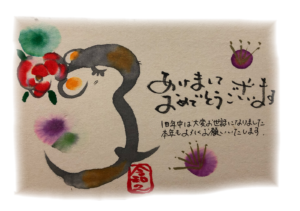 あけまして
おめでとうございます
旧年中は大変お世話になりました
本年もよろしくお願いいたします
令和2